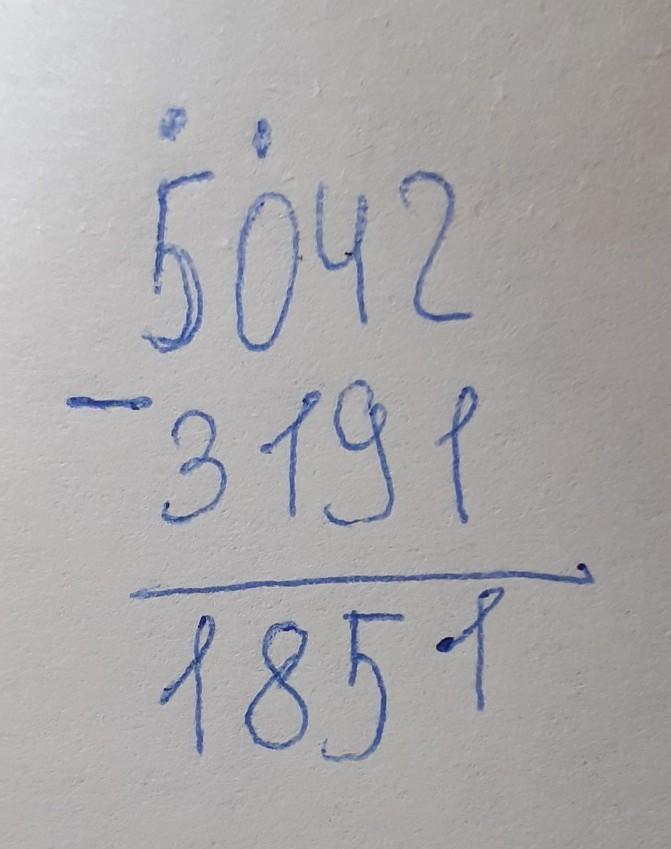 5042
-
3191
1851